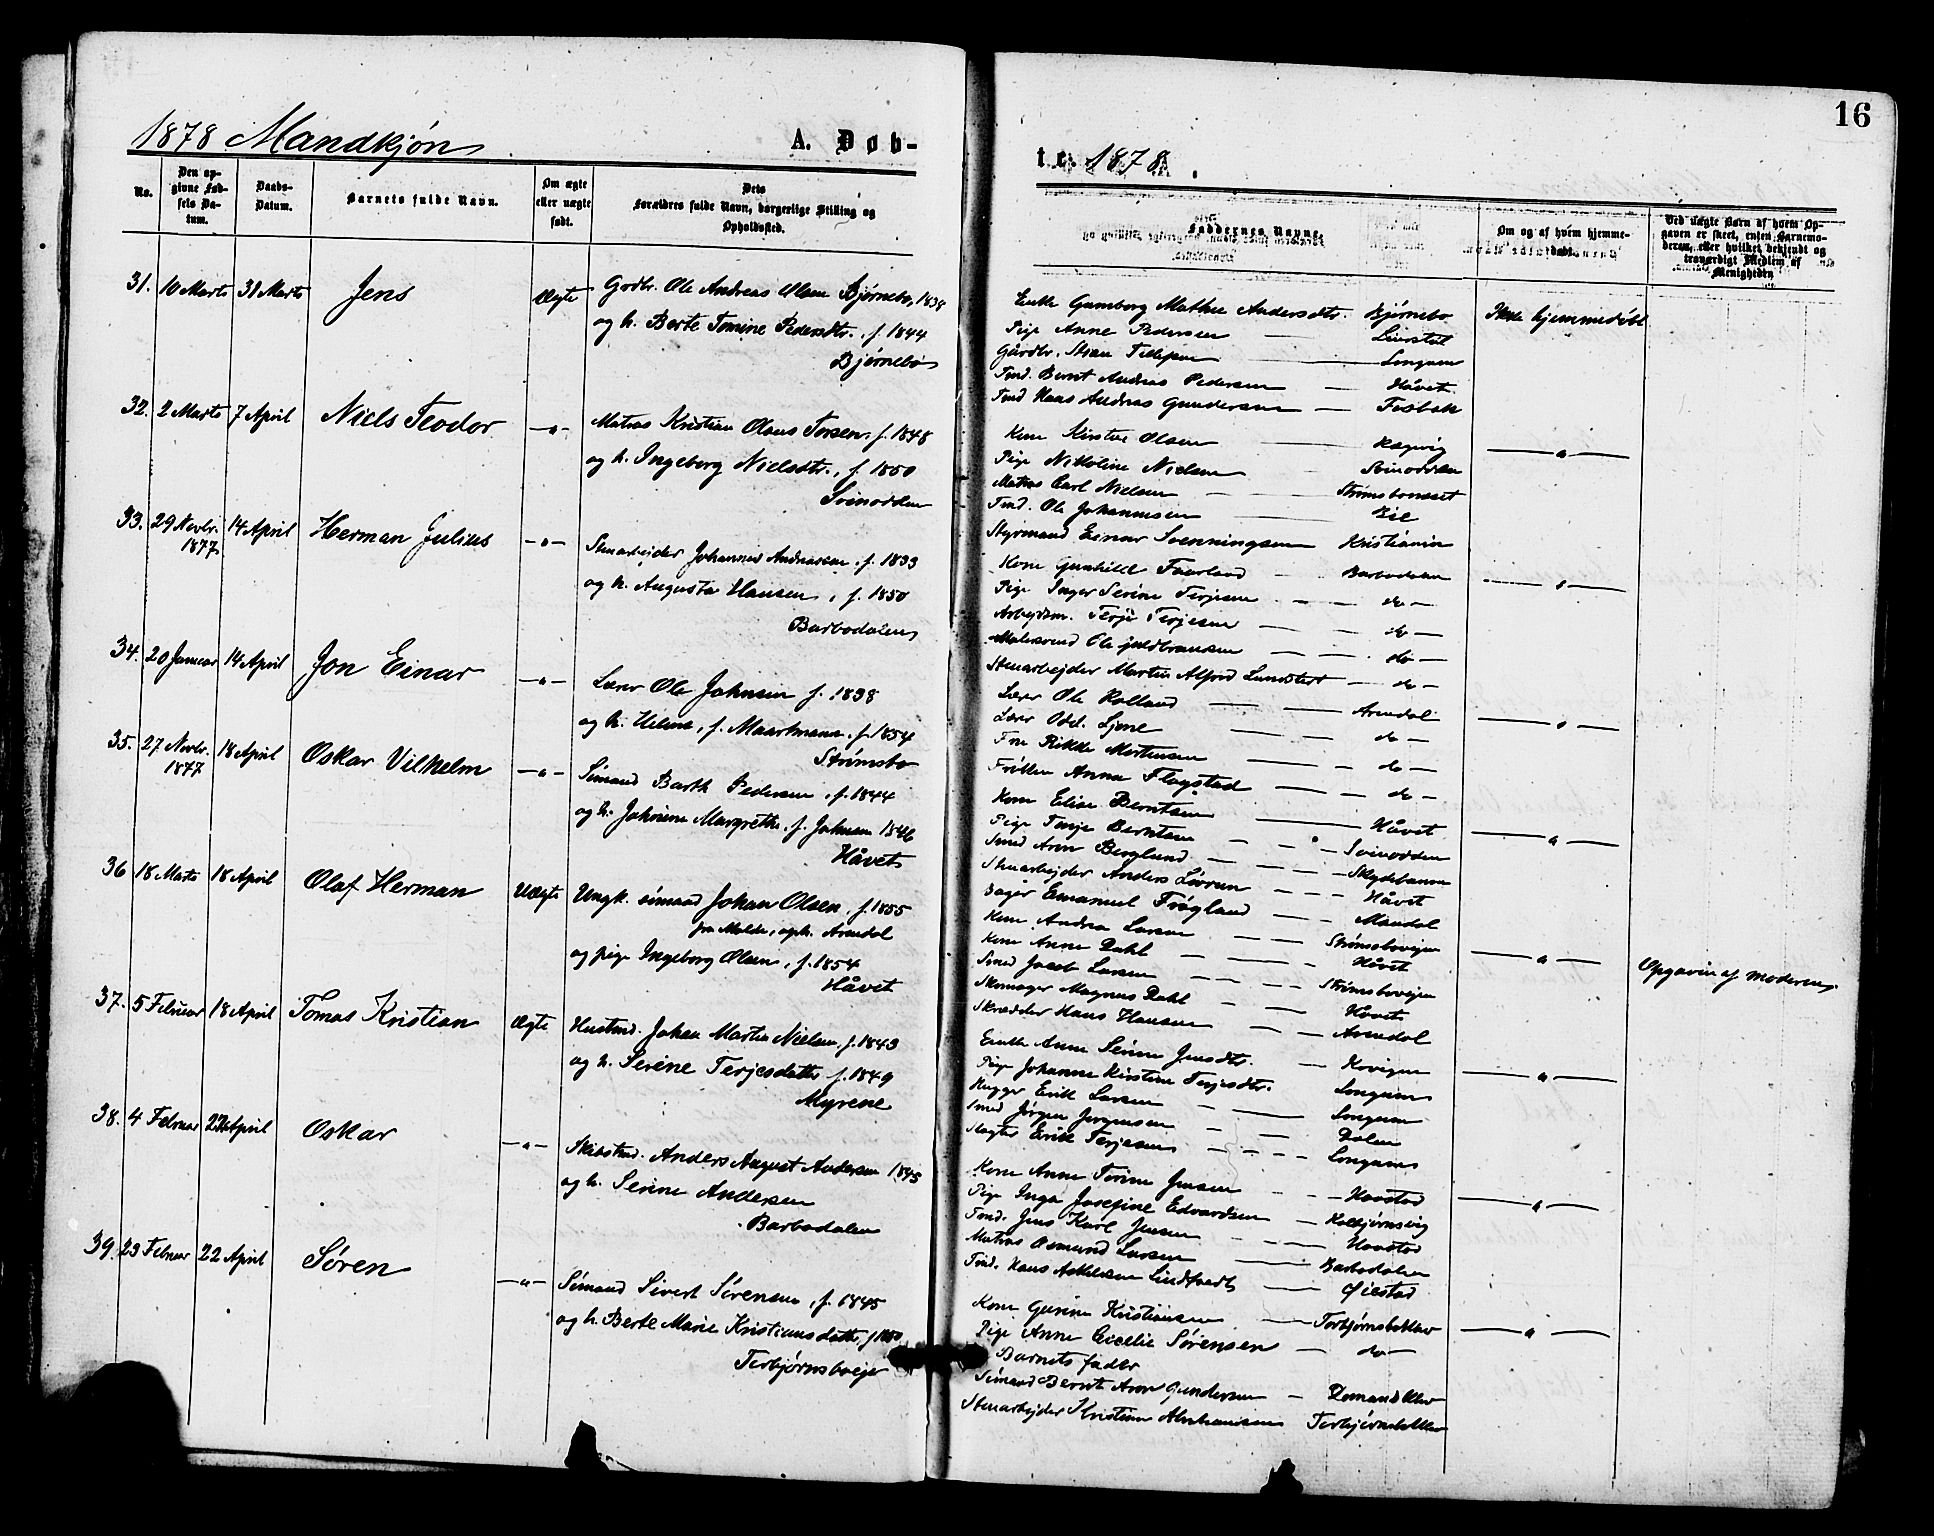 16
1878 Mandkjøn
A. Døb-
te. 1878.
No.
Den opgivne Fødsels Datum.
Daabs-Datum.
Barnets fulde Navn.
Om ægte eller uægte født.
Dets Forældres fulde Navn, borgerlige Stilling og Opholdssted.
Faddernes Navne.
Om og af hvem hjemmedøbt.
Ved uægte Børn af hvem Opgaven er skeet, enten Barnemoderen, eller hvilket bekjendt og troværdigt Medlem af Menigheden
31. 10 Marts 31 Marts Jens Ægte Grdbr. Ole Andreas Olsen Bjørnebo, 1838
og h. Berte Tomine Pedersdtr. f. 1844
Bjørnebo
Enke Gumborg Mathea Andersdtr. Bjørnebo Ikke hjemmedøbt
Pige Anne Pedersen
Gårdbr. Stian Tellefsen Longum
Tmd. Bernt Andreas Pedersen — Håvet
Tmd Hans Andreas Gundersen — Fosbæk
32. 2 Marts 7 April Niels Teodor —"— Matros Kristian Olaus Torsen, f. 1848
og h. Ingeborg Nielsdtr., f. 1850
Svinodden
Kone Kirstine Olsen —"—
Pige Nikoline Nielsen Svinodden
Matros Carl Nielsen — Strømsbonæset
Tmd. Ole Johannesen — Bie
Styrmand Einar Svenningsen Kristiania
33. 29 Novbr. 1877 14 April Herman Julius —"— Stenarbejder Johannes Andreasen f. 1833
og h. Augusta Hansen, f. 1850
Barbodalen
Kone Gunhild Faarland Barbodalen —"—
Pige Inger Serine Terjesen — do —
Arbejdsm. Terje Terjesen — do —
Malersvend Ole Guldbransen — do —
Stenarbejder Martin Alfred Lundstedt — do —
34. 20 Januar 14 April Jon Einar —"— Lærer Ole Johnsen f. 1838
og h. Helene, f. Maartmann. f. 1854
Strømsbo
Lærer Ole Rolland — Arendal —"—
Lærer Odd. Ljone — do —
Fru Rikke Mortensen — do —
Frøken Anna Flagstad — do —
35. 27 Novbr. 1877 18 April Oskar Vilhelm —"— Sømand Barth Pedersen, f. 1844
og h. Johnine Margrethe, f. Johnsen 1846
Håvet
Kone Elise Berntsen — Håvet —"—
Pige Tomje Berntsen — Svinodden
Smed Aron Berglund — Skydebanen
Stenarbejder Anders — Håvet
Bager Emanuel Frøgland — Mandal
36 18 Marts 18 April Olaf Herman Uægte Ungk. sømand Johan Olsen, f. 1855
fra Molde, oph. Arendal
og pige Ingeborg Olsen, f. 1854
Håvet
Kone Andrea Larsen — Strømsboveien
Kone Anne Dahl — Håvet —"— Opgaven af moderen
Smed Jacob Larsen — Strømsboveien
Skomager Magnus Dahl — Håvet
Skrædder Hans Hansen — Arendal
37. 5 Februar 18 April Tomas Kristian Ægte Hustmd. Johan Martin Nielsen, f. 1843
og h. Serine Terjesdatter f. 1849
Myrene
Enke Anne Serine Jensdtr.
Pige Johanne Kirstine Terjesdtr. Longum —"—
Hugger Erik Larsen — Longum
Smed Jørgen Jørgensen — Dalen
Slagter Erik Terjesen — Longum
38. 4 Februar 22 April Oskar —"— Skibstmd. Anders August Andersen 1845
og h. Serine Andersen
Barbodalen
Kone Anne Torine Jensen — Havstad —"—
Pige Inga Josefine Edvardsen — Kolbjørnsvig
Tmd. Jens Karl Jensen — Havstad
Matros Osmund Larsen — Barbodalen
Tmd. Hans Askilsen Lindtveit — Øiestad
39. 23 Februar 22 April Søren —"— Sømand Sivert Sørensen, f. 1845
og h. Berte Marie Kristiansdatter, f. 1850
Torbjørnsboeje
Kone Gurine Kristiansen — Torbjørnsboklev —"—
Pige Anne Cicelie Sørensen — do —
Barnets fader
Sømand Bernt Aron Gundersen —
Stenarbejder Kristian Abrahamsen Torbjørnsboklev